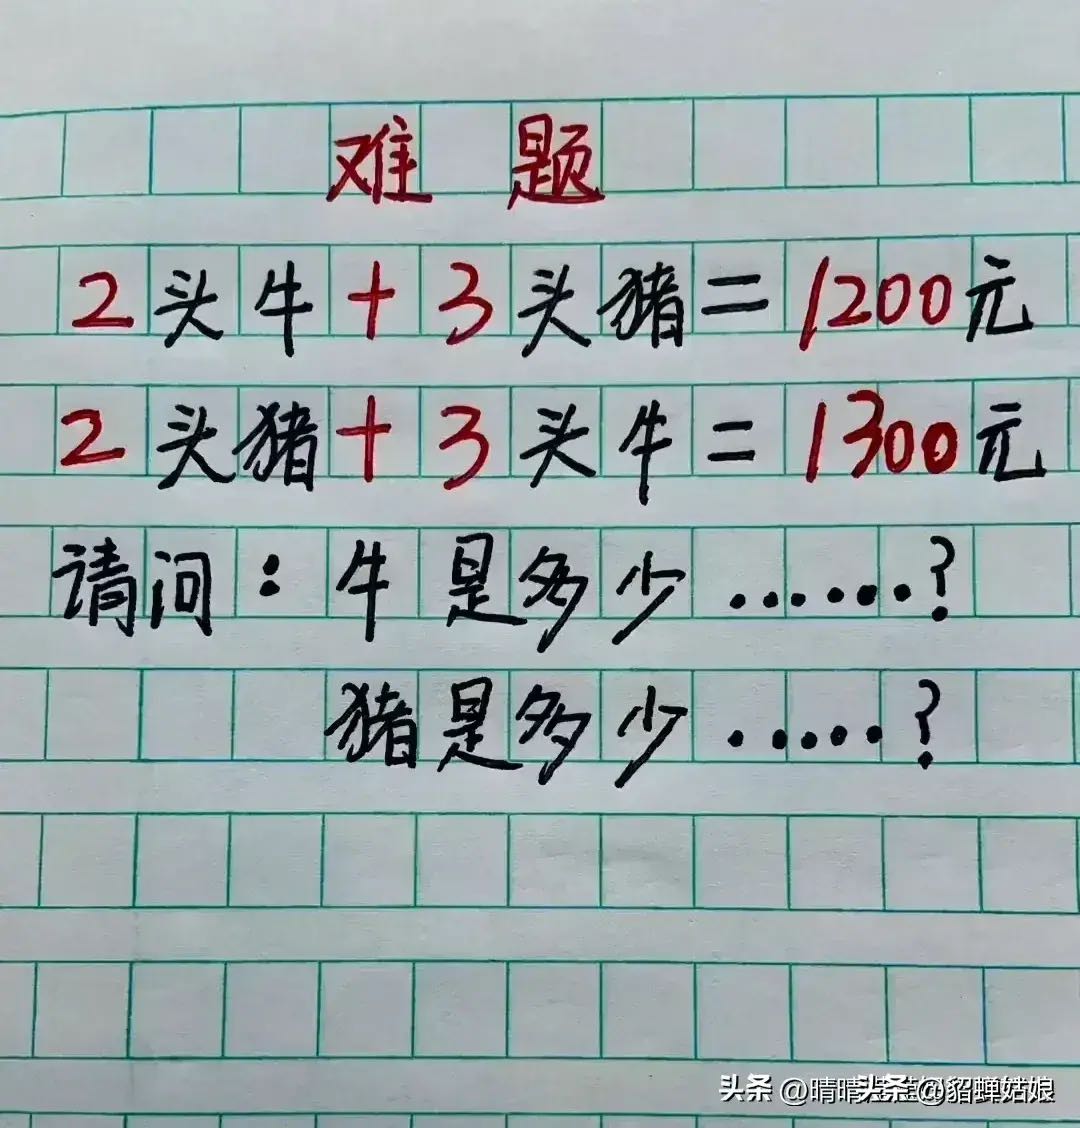 难题
2头牛+3头猪=1200元
2头猪+3头牛=1300元
请问:牛是多少......?
猪是多少.....?
头条 @貂蝉姑娘